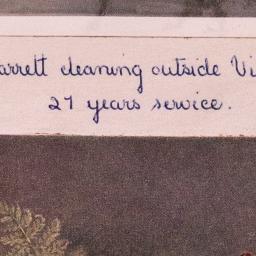 arrett cleaning outside Vi
27 years service.